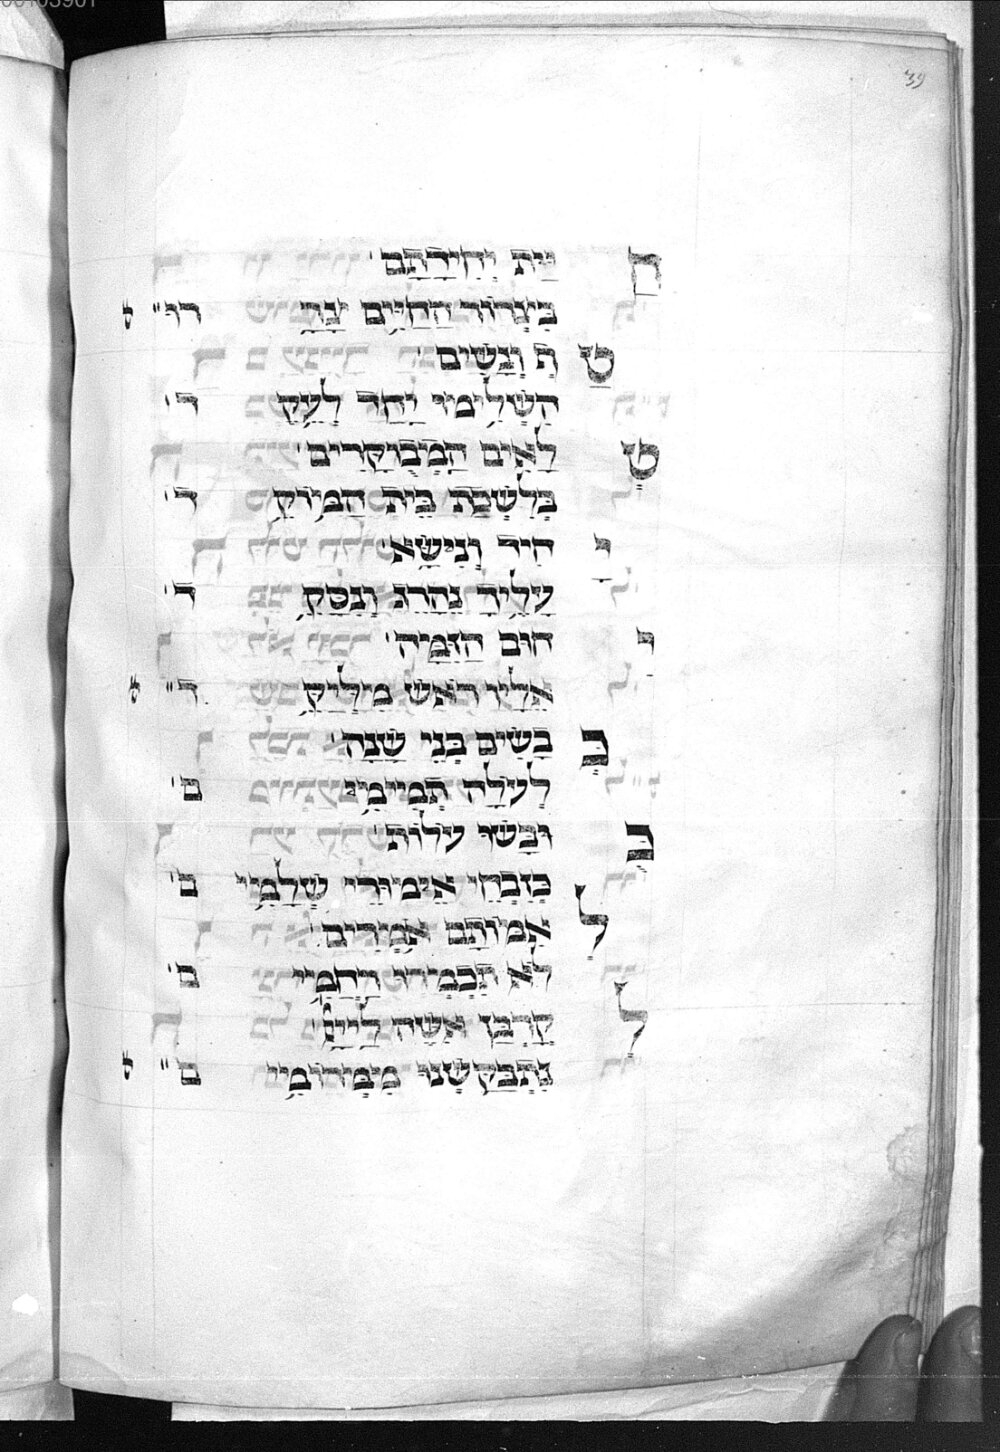 39
ח יַּת יְחִידָתָם
בִּצְרוֹר הַחַיִּים יִצָּרֵ רוּ״
טַ ף וְנָשִׁים
הִשְׁלִימוּ יַחַד לַעֲקֵ ד׳
טְ לָאִים הַמְבוּקָּרִים
בְּלִשְׁכַּת בֵּית הַמּוֹקֵ ד׳
יָ חִיד וְנִישָּׂא
עָלֶיךָ נֶהֱרַג וְנִסְקַ ד׳
י חוּם הַזְמֵּיהּ
אֵלָיו רֹאשׁ מִלִּיקַ ד״
כְּ בָשִׂים בְּנֵי שָׁנָה
לְעֹלָה תְּמִימִ ם׳
כֻּ וּבְּשׂוּ עֹלוֹת
כְּזִבְחֵי אֵימוּרֵי שְׁלָמִי ם׳
לְ אִמּוֹתָם אֹמְרִים
לֹא נִכְמְרוּ רַחֲמִי ם׳
לְ קָרְבַּן אִשֶּׁה לַייָ
נִתְבַּקַּשְׁנוּ מִמְּרוֹמִי ם״